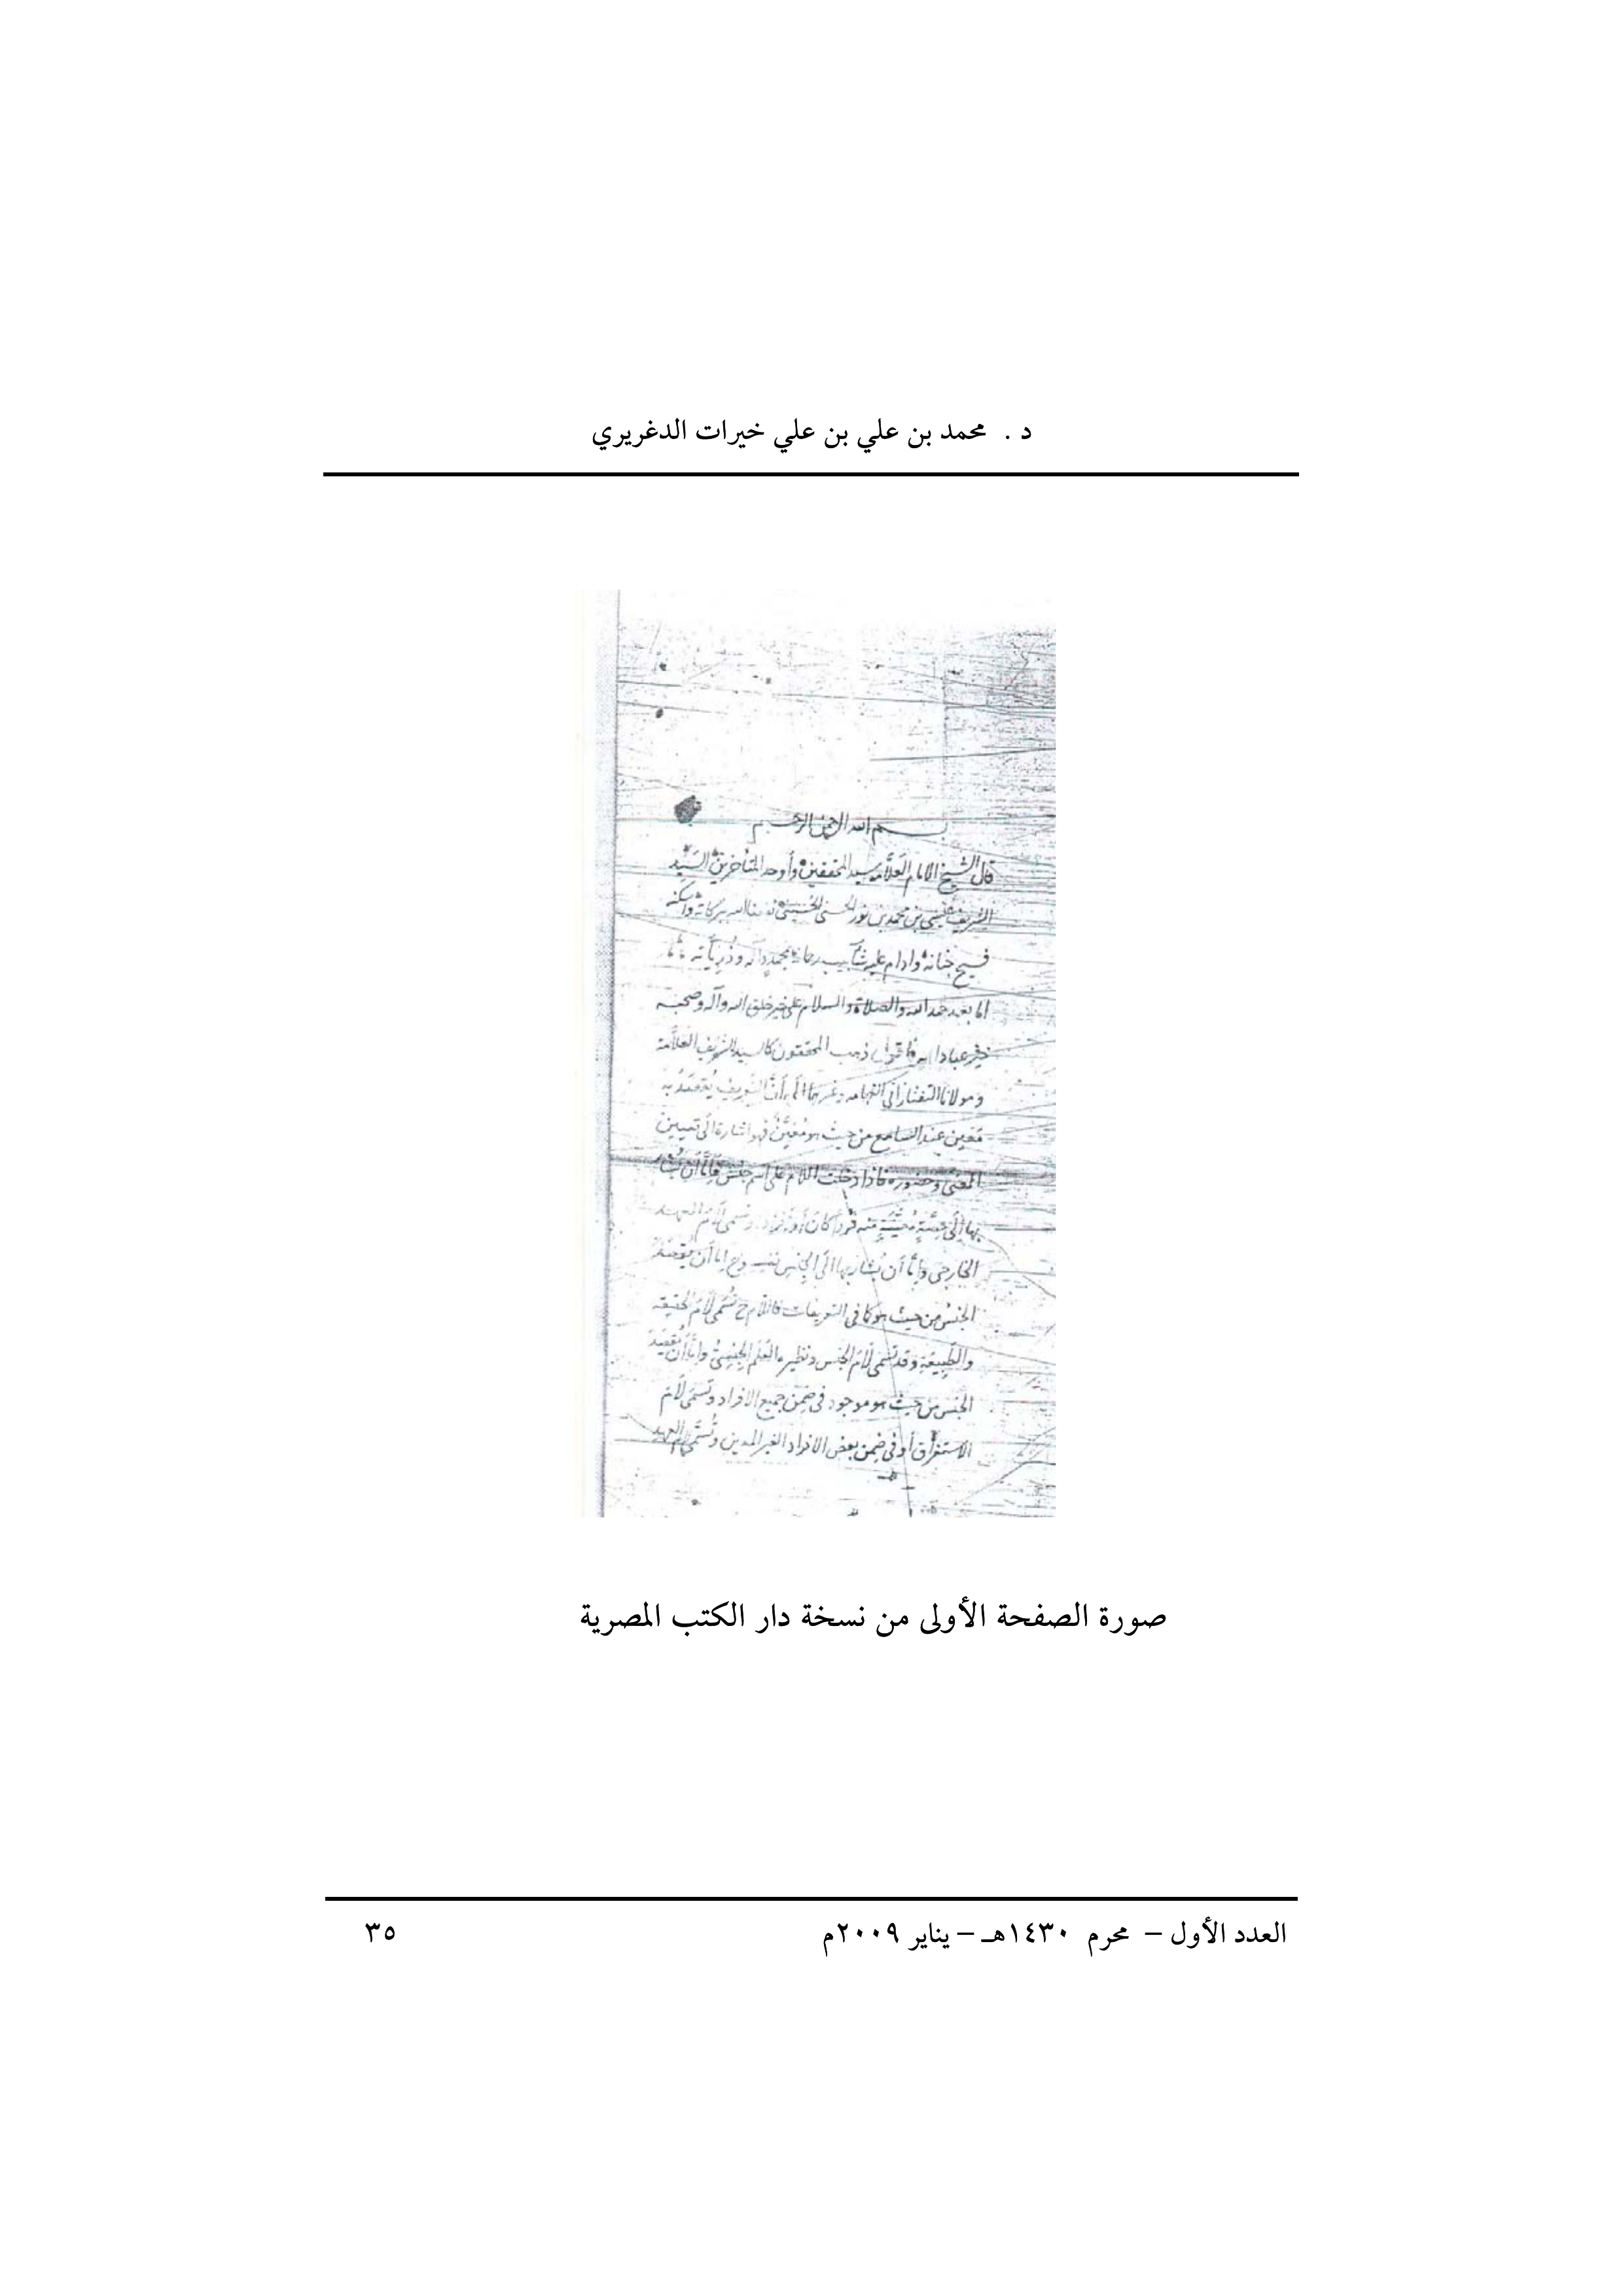 د . محمد بن علي بن علي خيرات الدغريري
بسم الله الرحمن الرحيم
قال الشيخ الامام العلامه سيد المحققين وأوحد المتأخرين السيد
الشريف عيسى بن محمد بن نور الحسنى الحسينى نفعنا الله ببركاته وأسكنه
فسيح جنانه وادام عليه شآبيب بمحمد وآله وذرياته
اما بعد حمد الله والصلاة والسلام على خير خلق الله وآله وصحبه
خير عباد الله فاقول ذهب المحققون كالسيد الشريف العلامة
ومولانا التفتازانى الفهامه وغيرهما الى أن التعريف يقصد به
معين عند السامع من حيث هو معين فهو اشارة الى تعيين
المعنى وحضوره فاذا دخلت اللام على اسم جنس فإما أن يشار
بها إلى حصة معينة منه فردا كان أو أفرادا وتسمى لام العهد
الخارجى وإما أن يشار بها الى الجنس نفسه وح إما أن يقصد
الجنس من حيث هو كما فى التعريفات فاللام ح تسمى لام الحقيقه
والطبيعة وقد تسمى لام الجنس ونظيره العلم الجنسى وإما أن يقصد
الجنس من حيث هو موجود فى ضمن جميع الافراد وتسمى لام
الاستغراق أو فى ضمن بعض الافراد الغير المعين وتسمى لام العهد
صورة الصفحة الأولى من نسخة دار الكتب المصرية
العدد الأول – محرم ١٤٣٠هـ – يناير ٢٠٠٩م ٣٥